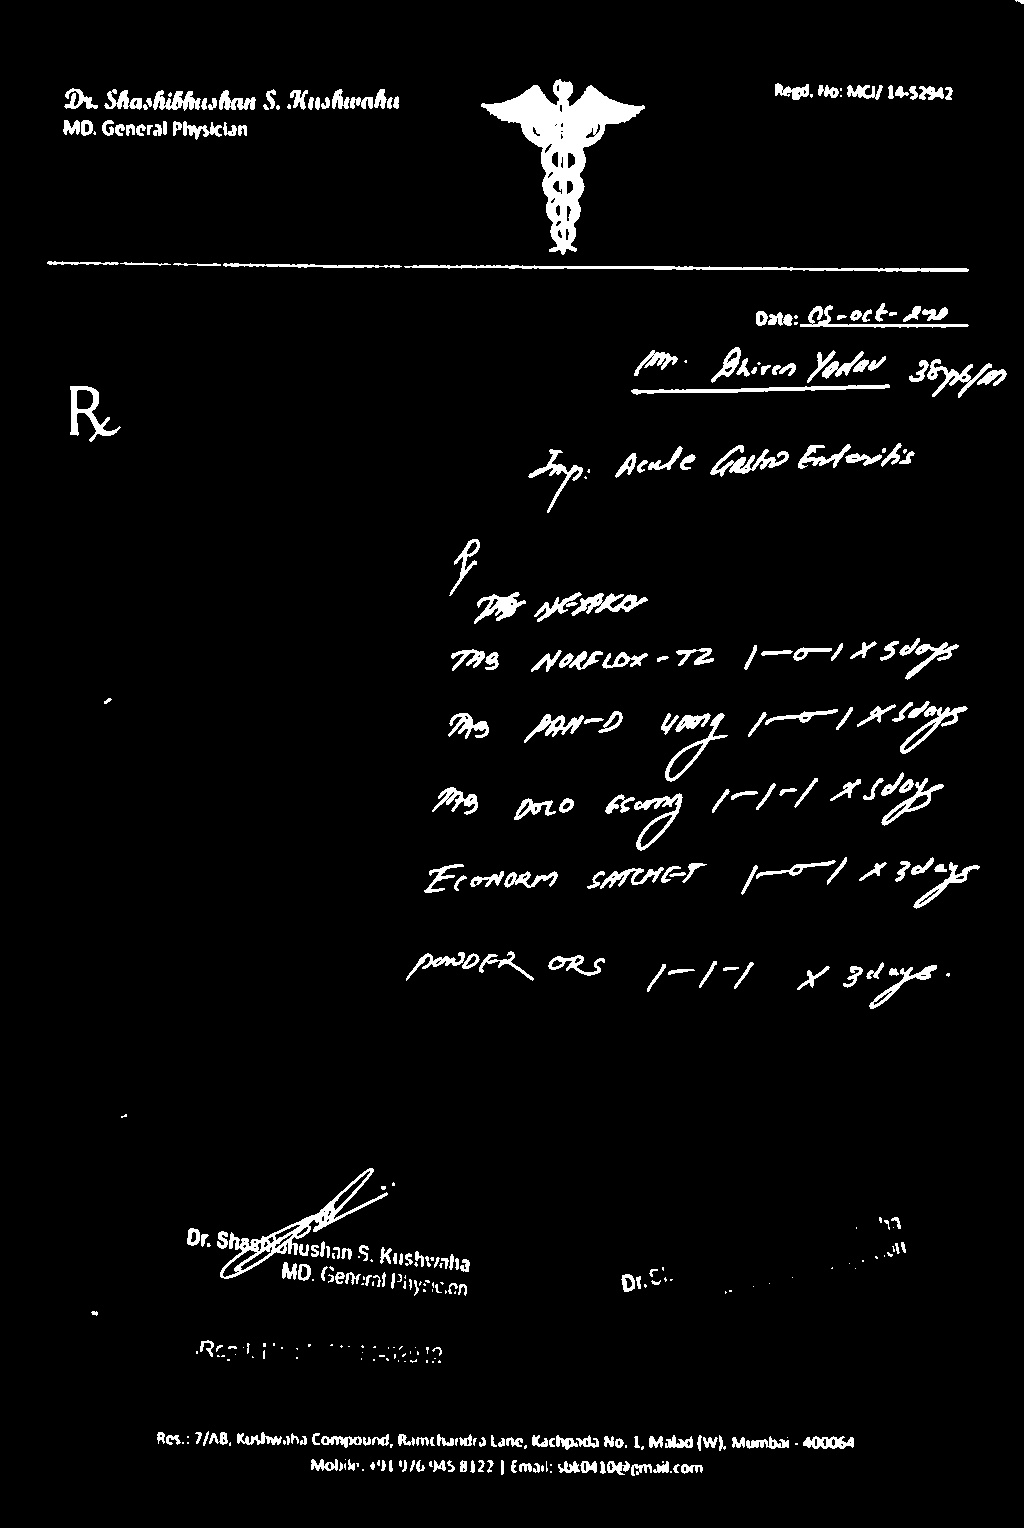 Dr. Shashibhushan S. Kushwaha
MD. General Physician
Regd. No: MCI/ 14-52942
Date: 05-oct-
Mr. Dhiren Yadav 38yrs/m
Rx
Imp: Acute Gastro Enteritis
Rx
TAB NORFLOX-TZ 1-0-1 X 5days
TAB PAN-D 40mg 1-0-1 X 5days
TAB DOLO 650mg 1-1-1 X 5days
ECONORM SATCHET 1-0-1 X 3days
POWDER ORS 1-1-1 X 3days.
Dr. Shashibhushan S. Kushwaha
MD. General Physician
Dr.
Res.: 7/AB, Kushwaha Compound, Ramchandra Lane, Kachpada No. 1, Malad (W), Mumbai - 400064
Mobile: +91 976 945 8122 | Email: sbk0410@gmail.com